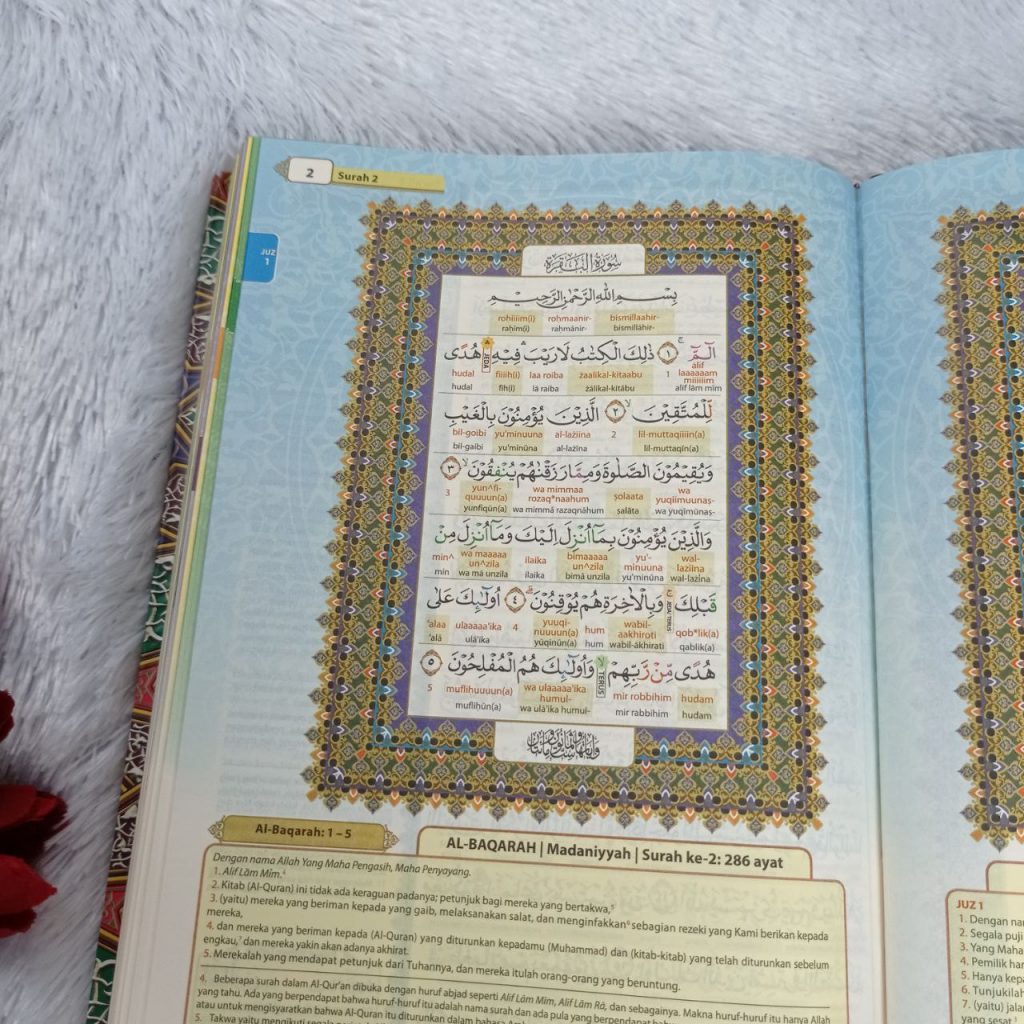 2
Surah 2
JUZ
1
سُورَةُ الْبَقَرَةِ
بِسْمِ اللّٰهِ الرَّحْمٰنِ الرَّحِيْمِ
bismillaahir- rohmaanir- rohiiim(i)
bismillāhir- rahmānir- rahīm(i)
الٓمّٓ ۚ ١ ذٰلِكَ الْكِتٰبُ لَا رَيْبَ ۛ فِيْهِ ۛ هُدًى
JEDA
alif laaaaaam miiiiiim 1 żaalikal-kitaabu laa roiba fiiih(i) hudal
alif lām mīm żālikal-kitābu lā raiba fīh(i) hudal
لِّلْمُتَّقِيْنَ ۙ ٢ الَّذِيْنَ يُؤْمِنُوْنَ بِالْغَيْبِ
lil-muttaqiiin(a) 2 al-lażiina yu'minuuna bil-goibi
lil-muttaqīn(a) al-lażīna yu'minūna bil-gaibi
وَيُقِيْمُوْنَ الصَّلٰوةَ وَمِمَّا رَزَقْنٰهُمْ يُنْفِقُوْنَ ۙ ٣
wa yuqiimuunaṣ- ṣolaata wa mimmaa rozaq*naahum yun^fi-quuuun(a) 3
wa yuqīmūnaṣ- ṣalāta wa mimmā razaqnāhum yunfiqūn(a)
وَالَّذِيْنَ يُؤْمِنُوْنَ بِمَآ اُنْزِلَ اِلَيْكَ وَمَآ اُنْزِلَ مِنْ
wal-lażiina yu'-minuuna bimaaaaa un^zila ilaika wa maaaaa un^zila min^
wal-lażīna yu'minūna bimā unzila ilaika wa mā unzila min
قَبْلِكَ ۚ وَبِالْاٰخِرَةِ هُمْ يُوْقِنُوْنَ ۗ ٤ اُولٰۤىِٕكَ عَلٰى
qob*lik(a) wabil-aakhiroti hum yuuqi-nuuuun(a) 4 ulaaaaa'ika 'alaa
qablik(a) wabil-ākhirati hum yūqinūn(a) ulā'ika 'alā
هُدًى مِّنْ رَّبِّهِمْ ۙ وَاُولٰۤىِٕكَ هُمُ الْمُفْلِحُوْنَ ٥
TERUS
hudam mir robbihim wa ulaaaaa'ika humul- muflihuuuun(a) 5
hudam mir rabbihim wa ulā'ika humul- mufliḥūn(a)
Al-Baqarah: 1 – 5
AL-BAQARAH | Madaniyyah | Surah ke-2: 286 ayat
Dengan nama Allah Yang Maha Pengasih, Maha Penyayang.
1. Alif Lām Mīm.⁴
2. Kitab (Al-Quran) ini tidak ada keraguan padanya; petunjuk bagi mereka yang bertakwa,⁵
3. (yaitu) mereka yang beriman kepada yang gaib, melaksanakan salat, dan menginfakkan⁶ sebagian rezeki yang Kami berikan kepada
mereka,
4. dan mereka yang beriman kepada (Al-Quran) yang diturunkan kepadamu (Muhammad) dan (kitab-kitab) yang telah diturunkan sebelum
engkau,⁷ dan mereka yakin akan adanya akhirat.
5. Merekalah yang mendapat petunjuk dari Tuhannya, dan mereka itulah orang-orang yang beruntung.
4. Beberapa surah dalam Al-Qur'an dibuka dengan huruf abjad seperti Alif Lām Mīm, Alif Lām Rā, dan sebagainya. Makna huruf-huruf itu hanya Allah
yang tahu. Ada yang berpendapat bahwa huruf-huruf itu adalah nama surah dan ada pula yang berpendapat bahwa
atau untuk mengisyaratkan bahwa Al-Quran itu diturunkan dalam bahasa
5. Takwa yaitu mengikuti segala
JUZ 1
1. Dengan
2. Segala puji
3. Yang Maha
4. Pemilik
5. Hanya
6. Tunjukilah
7. (yaitu)
yang sesat.